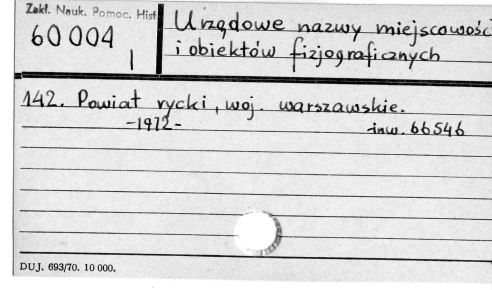 Zakł. Nauk. Pomoc. Hist.
60 004
I
Urzędowe nazwy miejscowości
i obiektów fizjograficznych
142. Powiat rycki, woj. warszawskie.
-1972-
inw. 66546
DUJ. 693/70. 10 000.